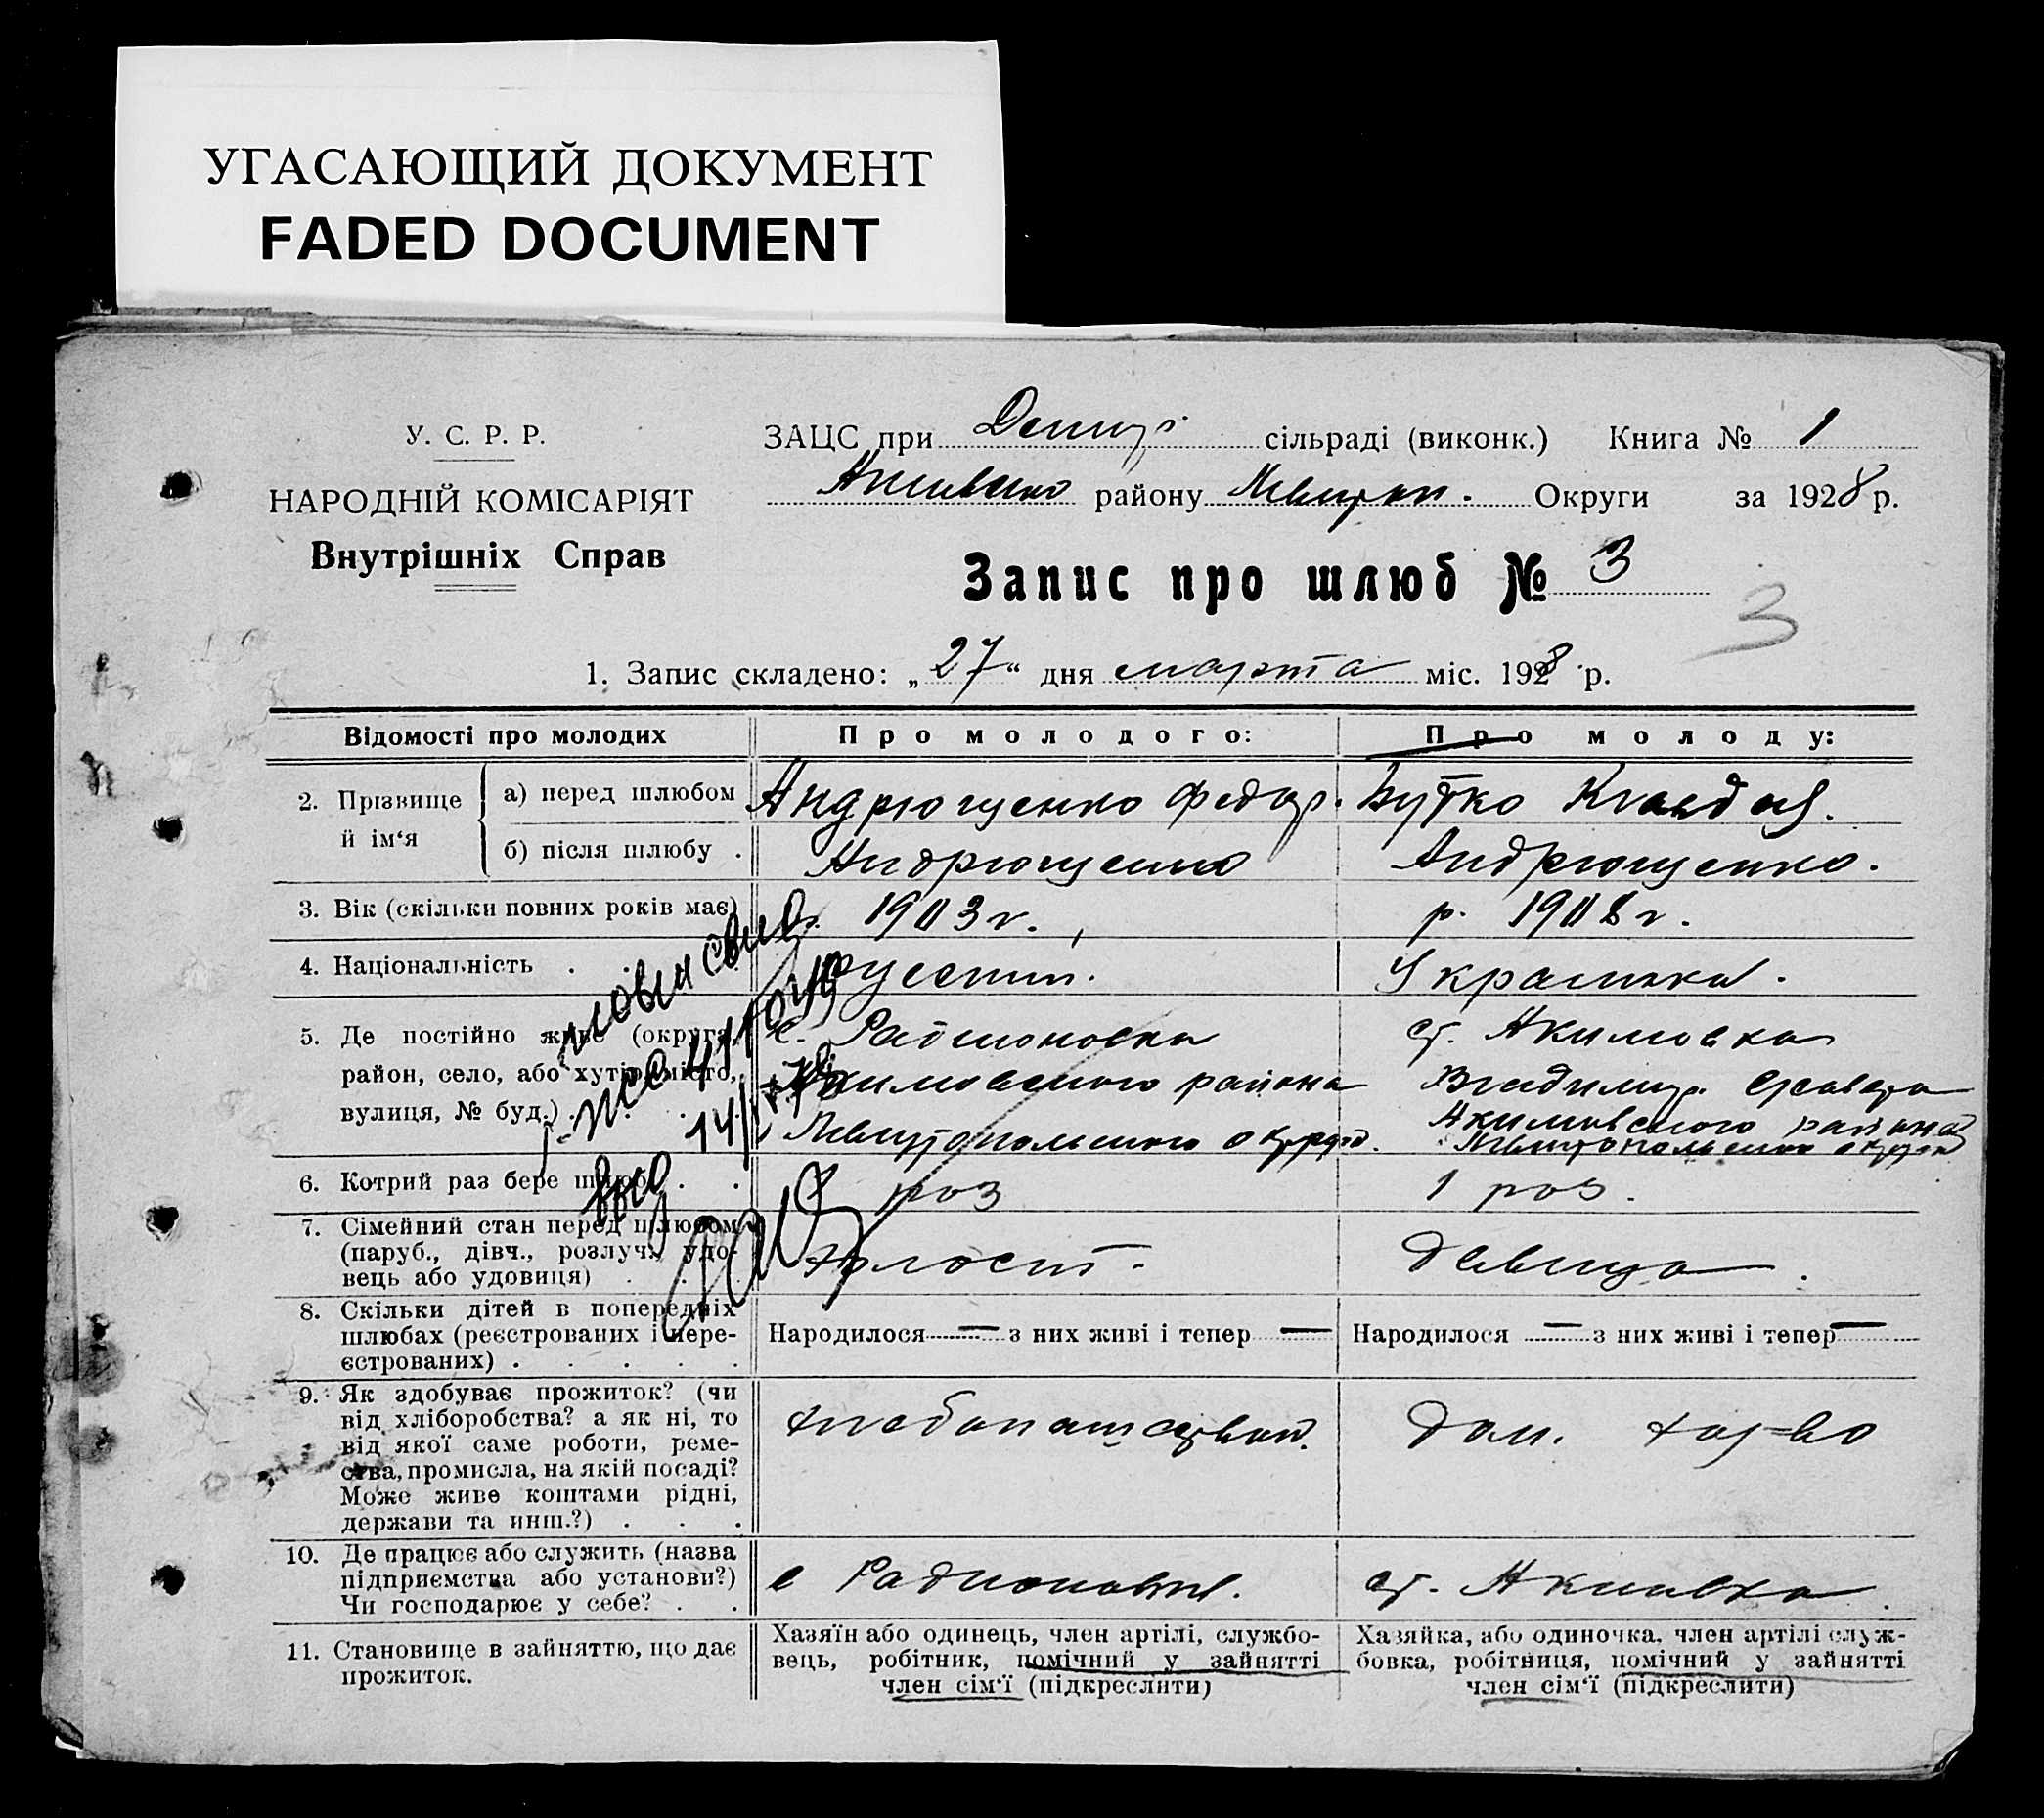 УГАСАЮЩИЙ ДОКУМЕНТ
FADED DOCUMENT
У. С. Р. Р.
НАРОДНІЙ КОМІСАРІЯТ
Внутрішніх Справ
ЗАЦС при сільраді (виконк.) Книга № 1
району Округи за 1928 р.
Запис про шлюб № 3
3
1. Запис складено: „27“ дня марта міс. 1928 р.
Відомості про молодих
Про молодого:
Про молоду:
2. Прізвище й ім‘я
а) перед шлюбом
Андрющенко Федор.
Бутко Клавдия.
б) після шлюбу .
Андрющенко
Андрющенко.
3. Вік (скільки повних років має)
1903 г.
р. 1908 г.
4. Національність .
русский.
Украинка.
5. Де постійно живе (округа,
район, село, або хутір, місто,
вулиця, № буд.) . . . .
с. Радионовка
Акимовского района
Мелитопольского округа.
ст. Акимовка
Акимовского района
Мелитопольского округа
6. Котрий раз бере шлюб . .
раз
1 раз.
7. Сімейний стан перед шлюбом
(паруб., дівч., розлуч., удо-
вець або удовиця) . . .
холост.
девица.
8. Скільки дітей в попередніх
шлюбах (реєстрованих і нере-
єстрованих) . . . . .
Народилося — з них живі і тепер —
Народилося — з них живі і тепер —
9. Як здобуває прожиток? (чи
від хліборобства? а як ні, то
від якої саме роботи, реме-
ства, промисла, на якій посаді?
Може живе коштами рідні,
держави та инш.?) . . .
хлебопашеством.
Дом. хоз-во
10. Де працює або служить (назва
підприємства або установи?)
Чи господарює у себе? . .
с Радионовка.
ст. Акимовка.
11. Становище в зайняттю, що дає
прожиток.
Хазяїн або одинець, член артілі, службо-
вець, робітник, помічний у зайнятті
член сім‘ї (підкреслити)
Хазяйка, або одиночка, член артілі служ-
бовка, робітниця, помічний у зайнятті
член сім‘ї (підкреслити)